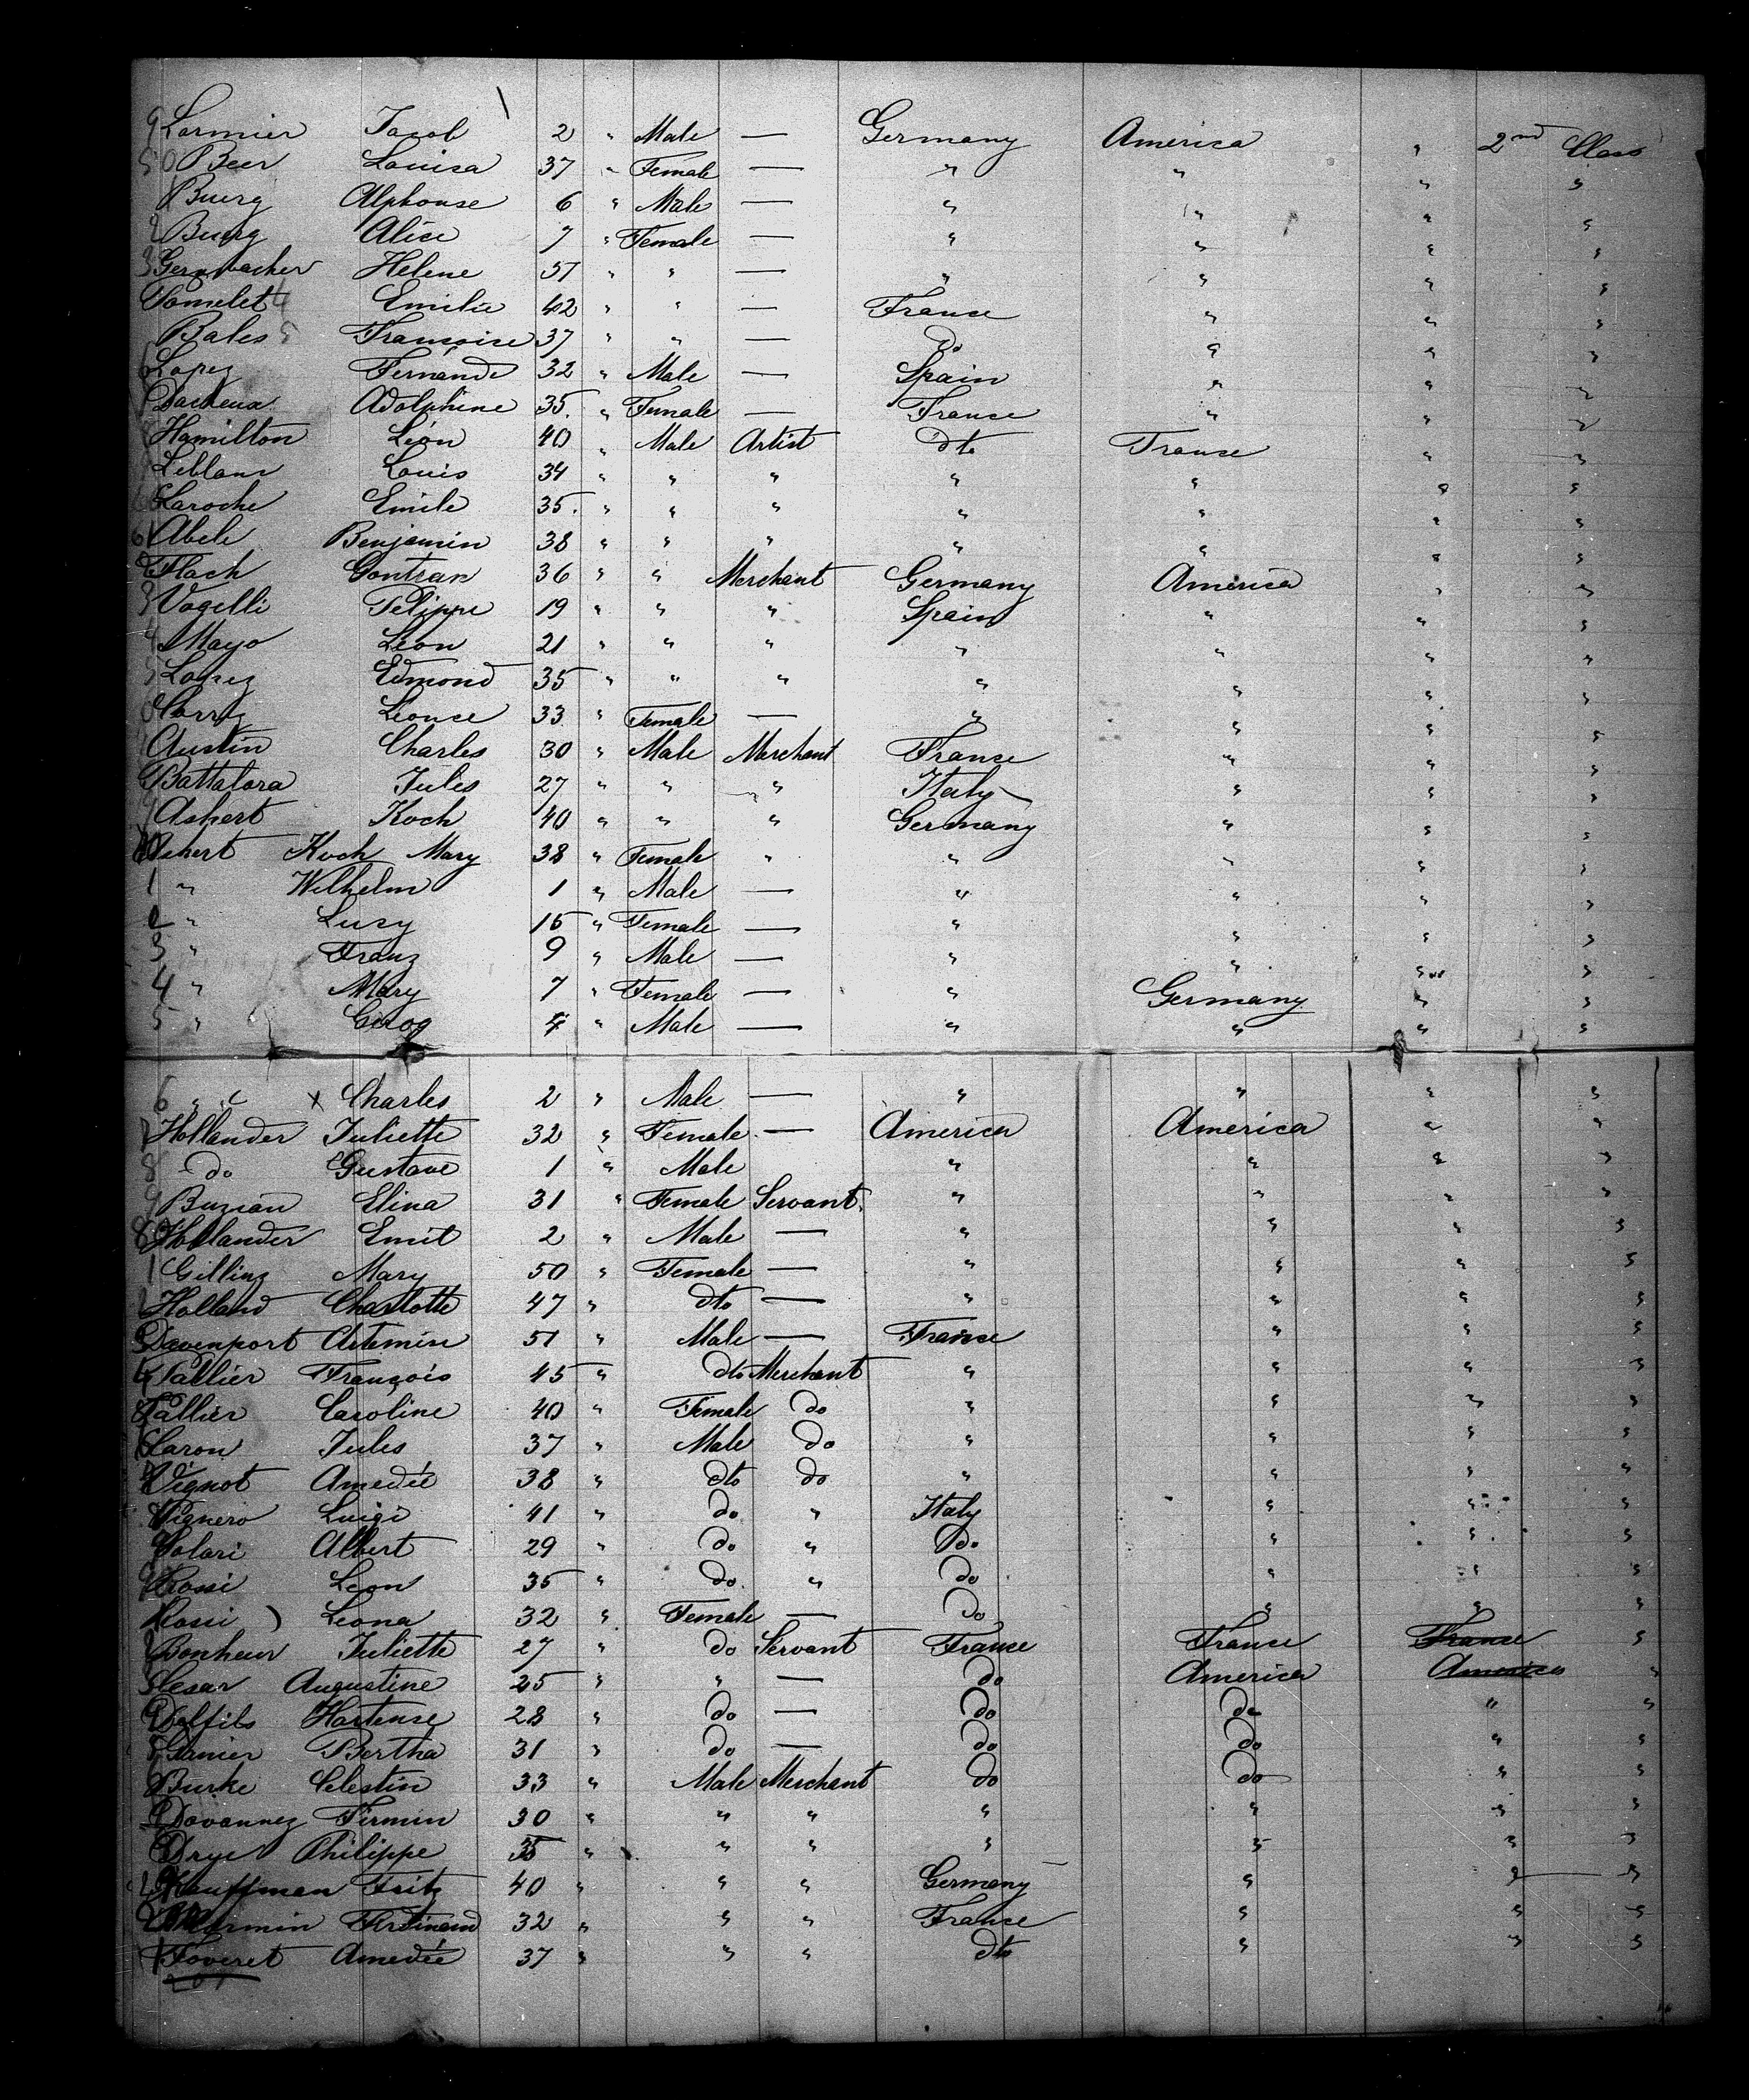 9 Lormier Jacob 2 " Male — Germany America " 2nd Class
50 Beer Louisa 37 " Female — " " " "
Buerg Alphonse 6 " Male — " " " "
2 Buerg Alice 7 " Female — " " " "
3 Helene 57 " " — " " " "
4 Emilie 42 " " — France " " "
Bales 5 Francoise 37 " " — do " " "
6 Lopez Fernande 32 " Male — Spain " " "
Adolphine 35. " Female — France " " "
Hamilton Léon 40 " Male Artist dto France " "
Leblanc Louis 34 " " " " " " "
Laroche Emile 35. " " " " " " "
61 Abele Benjamin 38 " " " " " " "
2 Flach Gontran 36 " " Merchant Germany America " "
3 Vogelli Felippe 19 " " " Spain " " "
4 Mayo Leon 21 " " " " " " "
5 Lopez Edmond 35 " " " " " " "
Leonce 33 " Female — " " " "
Austin Charles 30 " Male Merchant France " " "
Battalora Jules 27 " " " Italy " " "
Ashert Koch 40 " " " Germany " " "
70 Ashert Koch Mary 38 " Female " " " " "
1 " Wilhelm 1 " Male — " " " "
2 " Lucy 15 " Female — " " " "
3 " Franz 9 " Male — " " " "
4 " Mary 7 " Female — " Germany " "
5 " 4 " Male — " " " "
6 " x Charles 2 " Male — " " " "
7 Hollander Juliette 32 " Female — America America " "
8 do Gustave 1 " Male " " " "
9 Buzian Elina 31 " Female Servant " " " "
80 Hollander Emil 2 " Male — " " " "
1 Gilling Mary 50 " Female — " " " "
2 Holland Charlotte 47 " dto — " " " "
3 Davenport Artemin 51 " Male — France " " "
4 Tallier François 45 " dto Merchant " " " "
Tallier Caroline 40 " Female do " " " "
Caron Jules 37 " Male do " " " "
Vignot Amedée 38 " dto do " " " "
Vignero Luigi 41 " do " Italy " " "
Solari Albert 29 " do " do " " "
Rossi Leon 35 " do " do " " "
Rossi ) Leona 32 " Female — do " " "
Bonheur Juliette 27 " do Servant France France France "
Cesar Augustine 25 " " — do America America "
Delfils Hortense 28 " do — do do " "
Garnier Bertha 31 " do — do do " "
Burke Celestin 33 " Male Merchant do do " "
Davannez Firmin 30 " " " " " " "
Philippe 35 " " " " " " "
Kauffman Fritz 40 " " " Germany " " "
Ferdinand 32 " " " France " " "
Foveret Amedée 37 " " " dto " " "
201